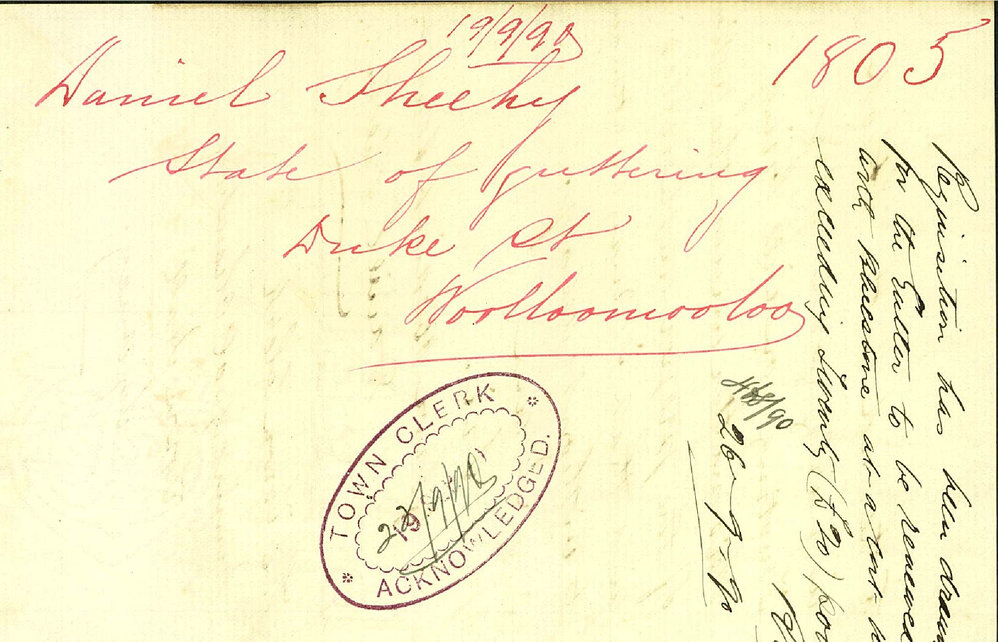 19/9/90
1805
Daniel Sheehy
State of guttering
Duke St
Woolloomooloo
TOWN CLERK
22/9/90
ACKNOWLEDGED.
Requisition has been
for the Gutter to be renewed
with bluestone at a cost
exceeding Twenty (£20)
26-9-90